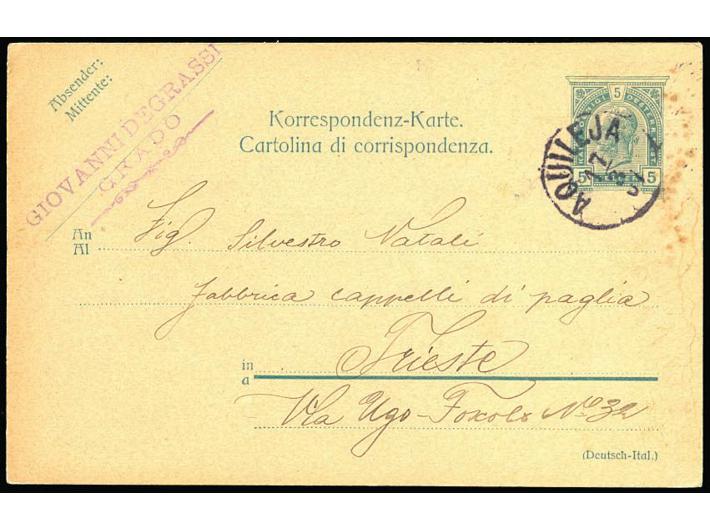 Absender:
Mittente:
GIOVANNI DEGRASSI
GRADO
Korrespondenz-Karte.
Cartolina di corrispondenza.
5
5 5
AQUILEJA
An
Al
Sig. Silvestro Natali
fabbrica cappelli di paglia
in
a
Trieste
Via Ugo Foscolo No 32
(Deutsch-Ital.)